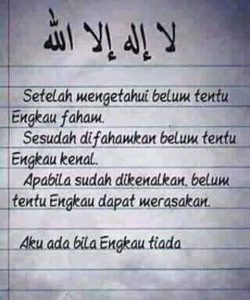 لا إله إلا الله
Setelah mengetahui belum tentu
Engkau faham.
Sesudah difahamkan belum tentu
Engkau kenal.
Apabila sudah dikenalkan, belum
tentu Engkau dapat merasakan.
Aku ada bila Engkau tiada